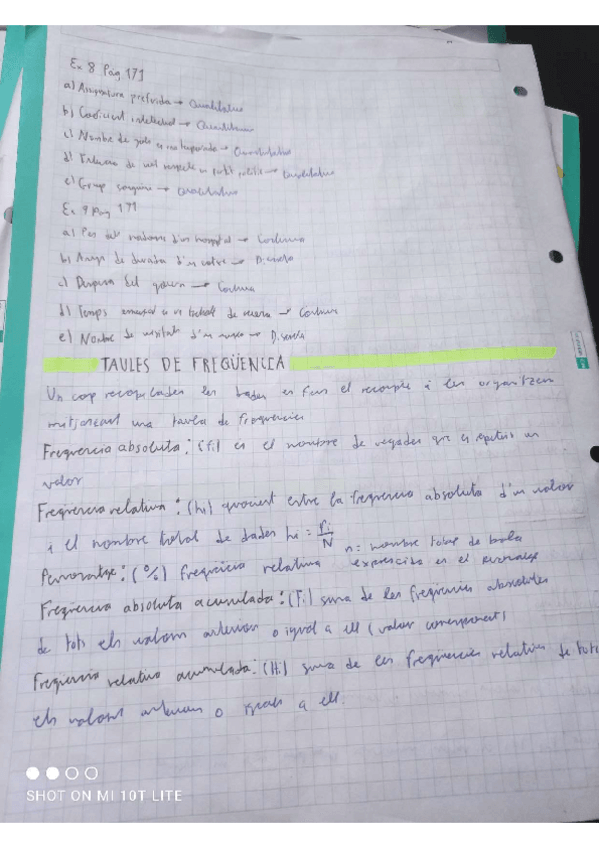 Ex 8 Pág 171
a) Assignatura preferida → Qualitativa
b) Coeficient intelectual → Quantitativa
c) Nombre de gols en una temporada → Quantitativa
d) Intenció de vot respecte un partit polític → Qualitativa
e) Grup sanguini → Qualitativa
Ex 9 Pag 171
a) Pes dels nadons d'un hospital → Continua
b) Anys de durada d'un cotxe → Discreta
c) Despesa del → Continua
d) Temps de → Continua
e) Nombre de visitants d'un museu → Discreta
TAULES DE FREGÜENCIA
Un cop recopilades les dades es fan el recompte i les organitzem
mitjançant una taula de frequencies
Freqüencia absoluta: (fi) es el nombre de vegades que es repeteix un
valor
Freqüencia relativa: (hi) quocient entre la freqüencia absoluta d'un valor
i el nombre total de dades hi = fi/N n = nombre total de
Percentatge: (%) freqüencia relativa expressada en el percentatge
Freqüencia absoluta acumulada: (Fi) suma de les freqüencies absolutes
de tots els valors anteriors o igual a ell (valor corresponent)
Freqüencia relativa acumulada: (Hi) suma de les freqüencies relatives de tots
els valors anteriors o iguals a ell.
SHOT ON MI 10T LITE